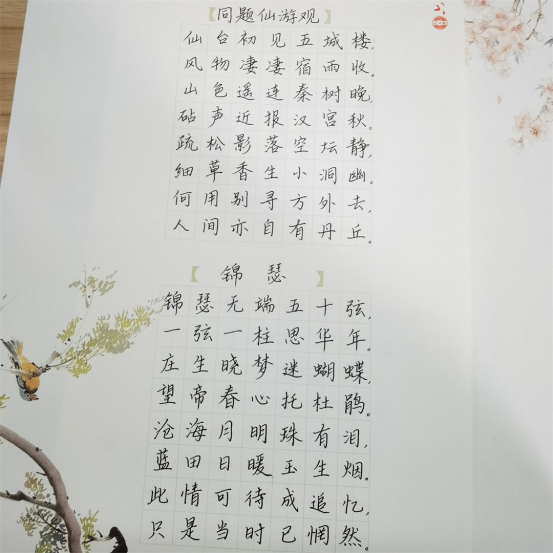 【同题仙游观】
仙台初见五城楼，
风物凄凄宿雨收。
山色遥连秦树晚，
砧声近报汉宫秋。
疏松影落空坛静，
细草香生小洞幽。
何用别寻方外去，
人间亦自有丹丘。
【锦瑟】
锦瑟无端五十弦，
一弦一柱思华年。
庄生晓梦迷蝴蝶，
望帝春心托杜鹃。
沧海月明珠有泪，
蓝田日暖玉生烟。
此情可待成追忆，
只是当时已惘然。